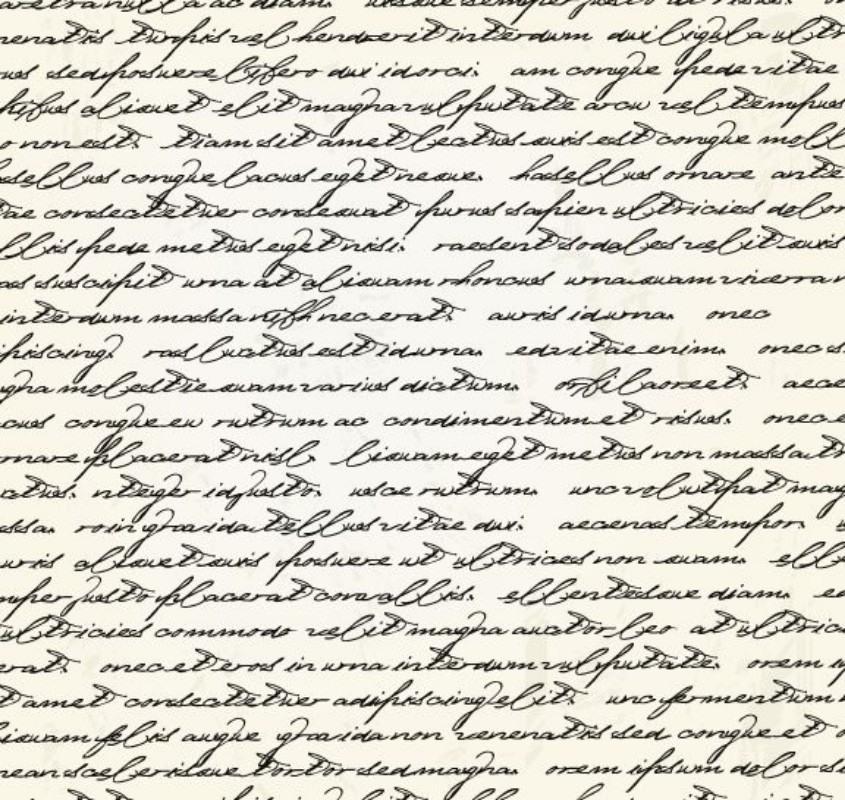 aretra nulla ac diam. uisque semper justo at risus.
nenatis turpis vel hendrerit interdum dui ligula ultr
us sed posuere libero dui id orci. am congue pede vitae
bus aliquet elit magna vulputate arcu vel tempus
o non est. tiam sit amet lectus quis est congue moll
asellus congue lacus eget neque. hasellus ornare ante
tae consectetuer consequat purus sapien ultricies dolor
llis pede metus eget nisi. raesent sodales velit quis
as suscipit urna at aliquam rhoncus urna quam viverra
interdum massa nibh nec erat. auris id urna. onec
ipiscing. ras luctus est id urna. ed vitae enim. onec
gna molestie quam varius dictum. orbi laoreet. aece
cus congue eu rutrum ac condimentum et risus. onec e
rnare placerat nisl. liquam eget metus non massa tr
ctus. nteger id justo. usce rutrum. unc volutpat mag
ssa. roin gravida tellus vitae dui. aecenas tempor.
uris aliquet quis posuere ut ultrices non quam. ell
mper justo placerat convallis. ellentesque diam. e
ultricies commodo velit magna auctor leo at ultric
erat. onec et eros in urna interdum vulputate. orem ip
t amet consectetuer adipiscing elit. unc fermentum
liquam felis augue gravida non venenatis sed congue et
nean scelerisque tortor sed magna. orem ipsum dolor si